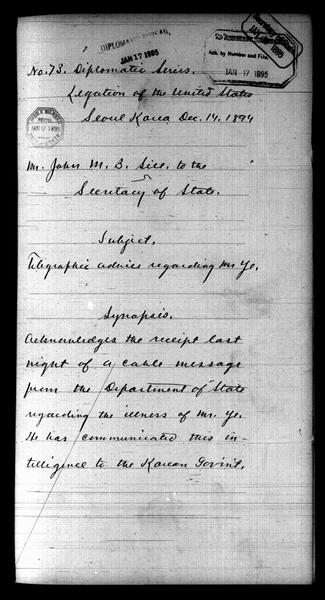 DIPLOMATIC BUREAU,
JAN 17 1895
Ack. by Number and File.
JAN 17 1895
1895
No. 73. Diplomatic Series.
Legation of the United States
Seoul Korea Dec. 14, 1894
JAN 17 1895
Mr. John M. B. Sill, to the
Secretary of State.
Subject.
Telegraphic advice regarding Mr Ye.
Synopsis.
Acknowledges the receipt last
night of a cable message
from the Department of State
regarding the illness of Mr. Ye.
He has communicated this in-
telligence to the Korean Gov'n't.